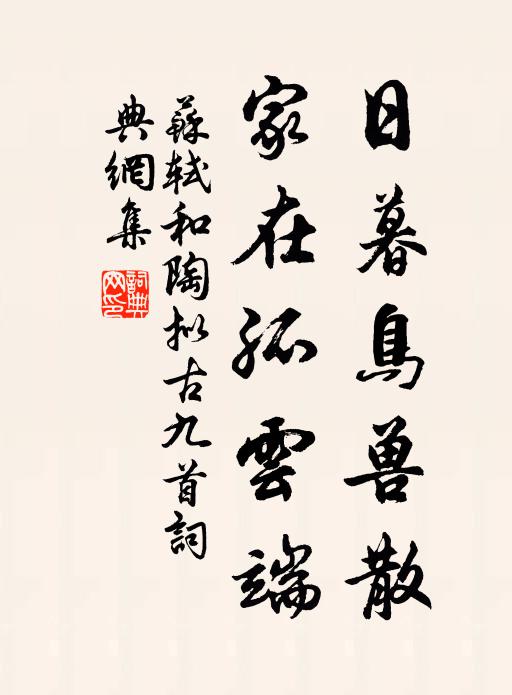 日暮鳥兽散
家在孤雲端
蘇轼和陶拟古九首詞
典網集
詞典网印